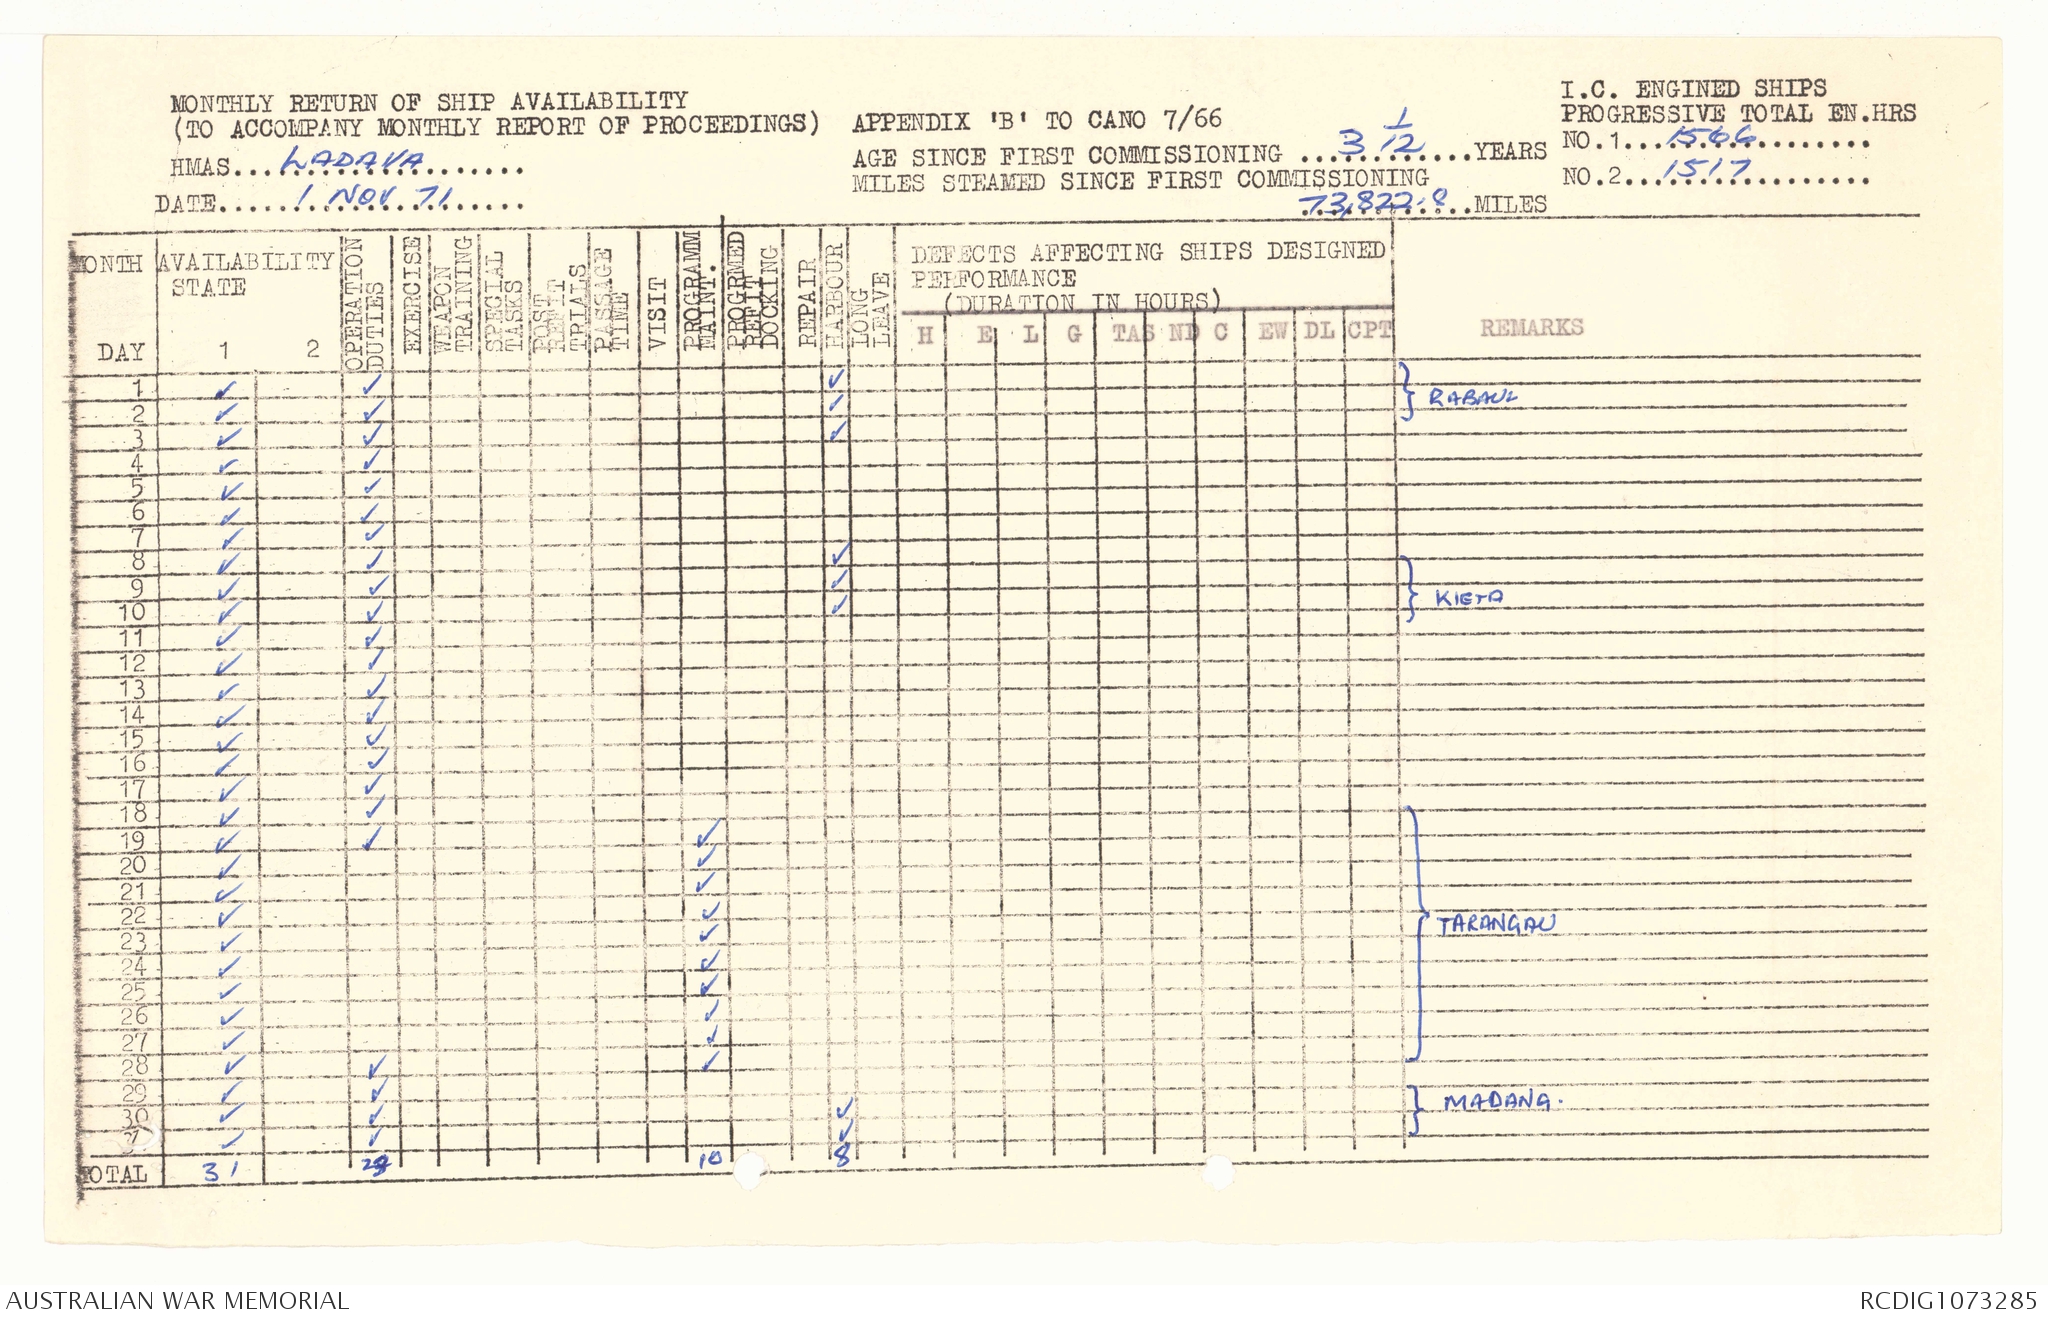 MONTHLY RETURN OF SHIP AVAILABILITY
(TO ACCOMPANY MONTHLY REPORT OF PROCEEDINGS)
HMAS... LADAVA
DATE... 1 NOV 71
APPENDIX 'B' TO CANO 7/66
AGE SINCE FIRST COMMISSIONING ... 3 1/12 ... YEARS
MILES STEAMED SINCE FIRST COMMISSIONING
73,822.8 ... MILES
I.C. ENGINED SHIPS
PROGRESSIVE TOTAL EN.HRS
NO.1... 1566
NO.2... 1517
MONTH
DAY
AVAILABILITY
STATE
1 2
OPERATION
DUTIES
EXERCISE
WEAPON
TRAINING
SPECIAL
TASKS
POST
REFIT
TRIALS
PASSAGE
TIME
VISIT
PROGRAMM
MAINT.
PROGRMED
REFIT
DOCKING
REPAIR
HARBOUR
LONG
LEAVE
DEFECTS AFFECTING SHIPS DESIGNED
PERFORMANCE
(DURATION IN HOURS)
H E L G TAS ND C EW DL CPT
REMARKS
1 ✓ ✓ ✓
2 ✓ ✓ ✓ RABAUL
3 ✓ ✓ ✓
4 ✓ ✓
5 ✓ ✓
6 ✓ ✓
7 ✓ ✓
8 ✓ ✓ ✓
9 ✓ ✓ ✓ KIETA
10 ✓ ✓ ✓
11 ✓ ✓
12 ✓ ✓
13 ✓ ✓
14 ✓ ✓
15 ✓ ✓
16 ✓ ✓
17 ✓ ✓
18 ✓ ✓
19 ✓ ✓ ✓
20 ✓ ✓
21 ✓ ✓
22 ✓ ✓ TARANGAU
23 ✓ ✓
24 ✓ ✓
25 ✓ ✓
26 ✓ ✓
27 ✓ ✓
28 ✓ ✓ ✓
29 ✓ ✓ MADANG.
30 ✓ ✓ ✓
31 ✓ ✓ ✓
TOTAL 31 10 8
AUSTRALIAN WAR MEMORIAL
RCDIG1073285